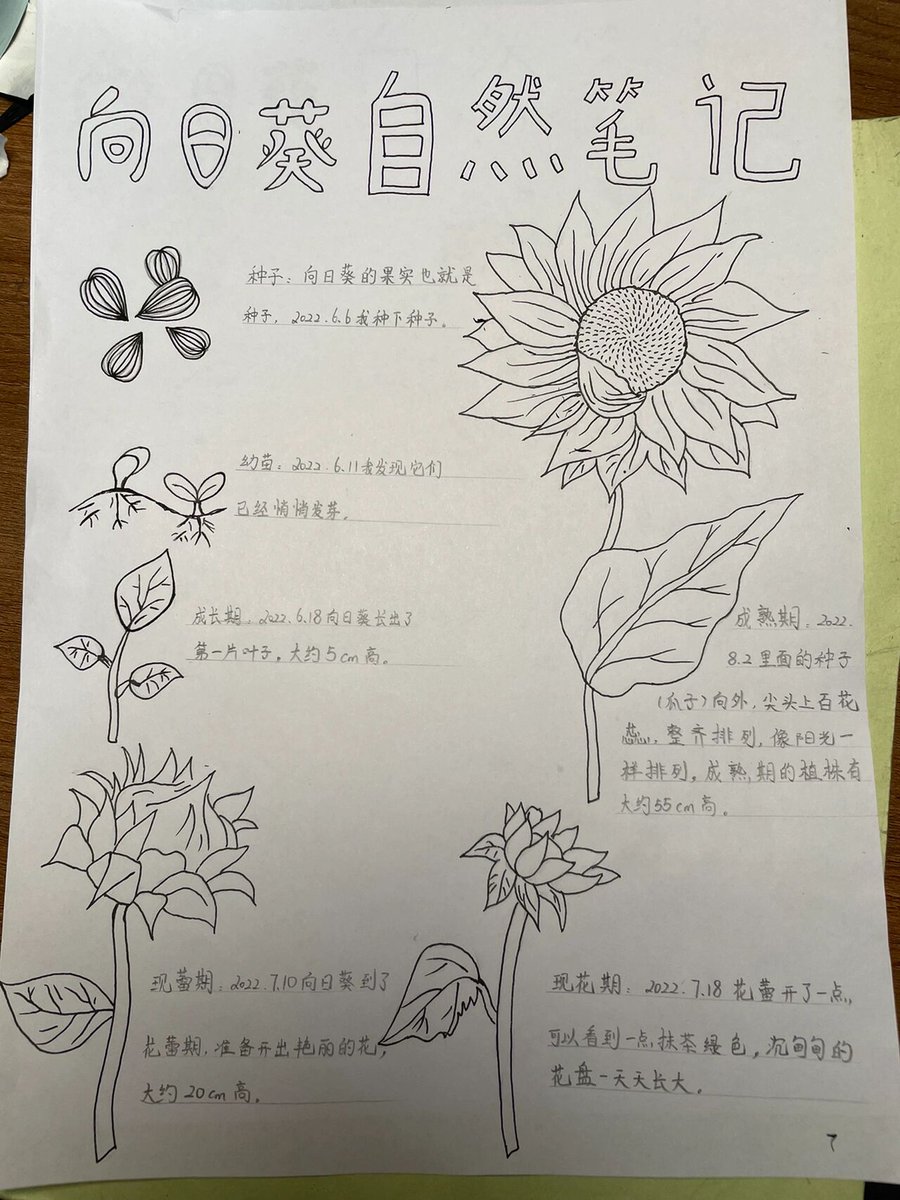 向日葵自然笔记
种子：向日葵的果实也就是
种子，2022.6.6我种下种子。
幼苗：2022.6.11我发现它们
已经悄悄发芽。
成长期：2022.6.18向日葵长出了
第一片叶子。大约5cm高。
成熟期：2022.
8.2里面的种子
（瓜子）向外，尖头上百花
蕊，整齐排列，像阳光一
样排列。成熟期的植株有
大约55cm高。
现蕾期：2022.7.10向日葵到了
花蕾期，准备开出艳丽的花，
大约20cm高。
现花期：2022.7.18花蕾开了一点，
可以看到一点抹茶绿色，沉甸甸的
花盘一天天长大。